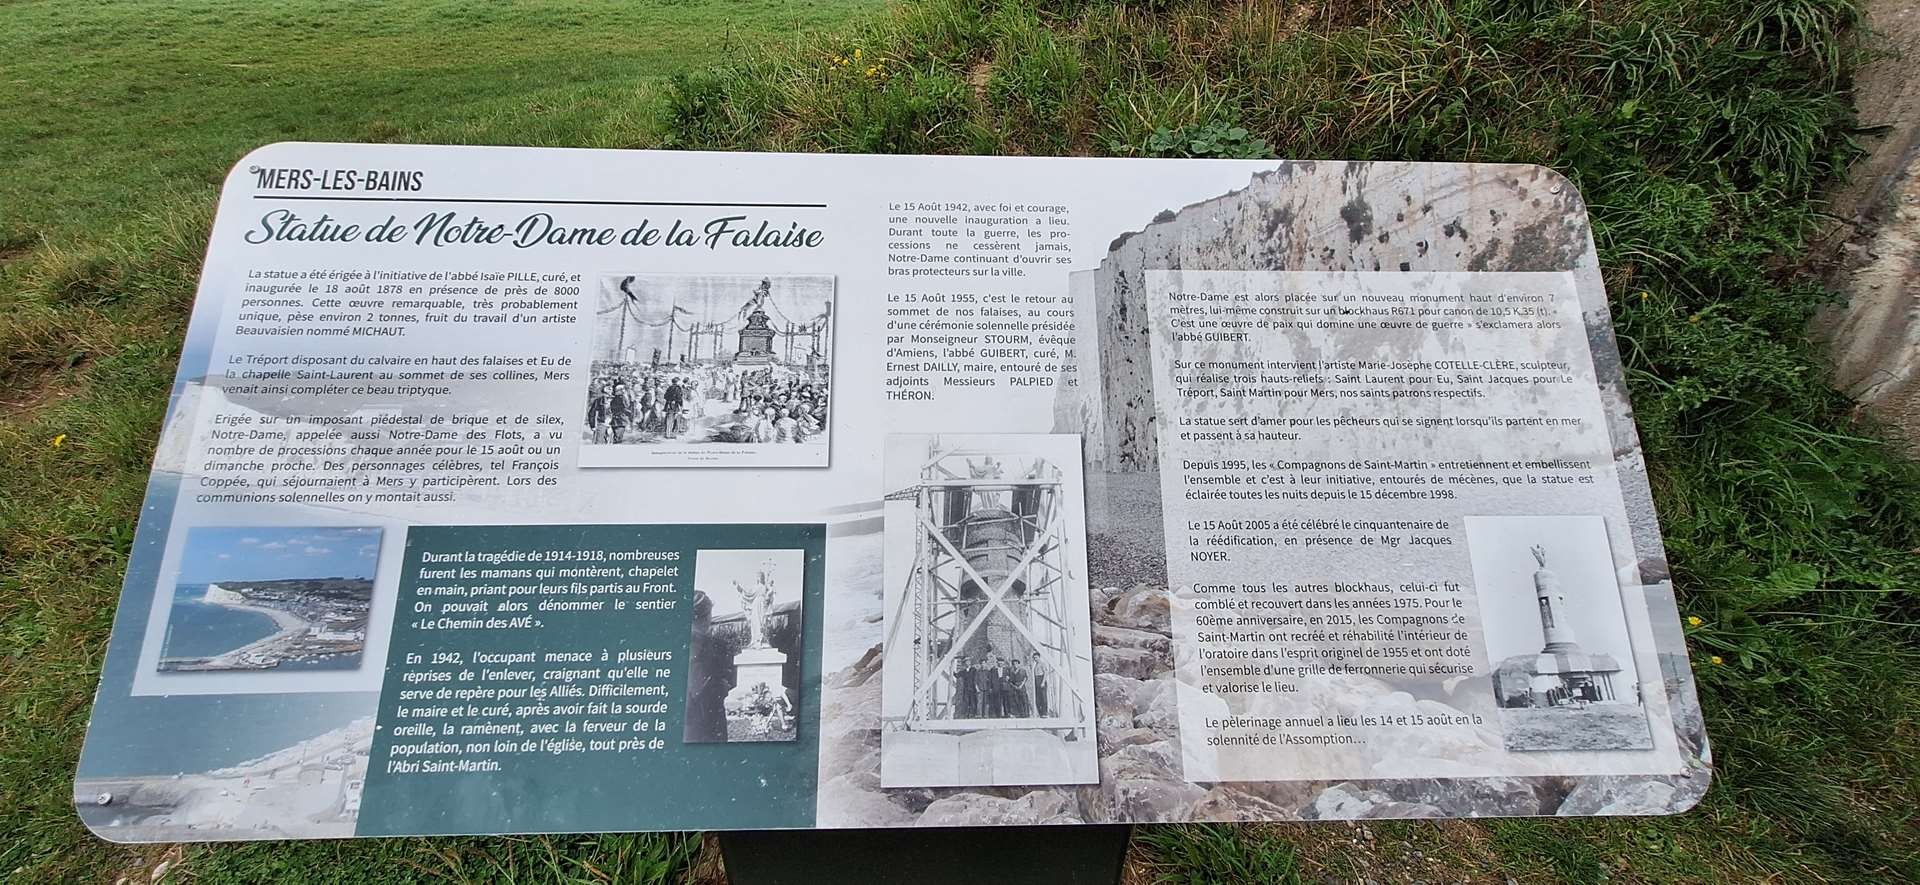 MERS-LES-BAINS
Statue de Notre-Dame de la Falaise
La statue a été érigée à l'initiative de l'abbé Isaïe PILLE, curé, et
inaugurée le 18 août 1878 en présence de près de 8000
personnes. Cette œuvre remarquable, très probablement
unique, pèse environ 2 tonnes, fruit du travail d'un artiste
Beauvaisien nommé MICHAUT.
Le Tréport disposant du calvaire en haut des falaises et Eu de
la chapelle Saint-Laurent au sommet de ses collines, Mers
venait ainsi compléter ce beau triptyque.
Erigée sur un imposant piédestal de brique et de silex,
Notre-Dame, appelée aussi Notre-Dame des Flots, a vu
nombre de processions chaque année pour le 15 août ou un
dimanche proche. Des personnages célèbres, tel François
Coppée, qui séjournaient à Mers y participèrent. Lors des
communions solennelles on y montait aussi.
Durant la tragédie de 1914-1918, nombreuses
furent les mamans qui montèrent, chapelet
en main, priant pour leurs fils partis au Front.
On pouvait alors dénommer le sentier
« Le Chemin des AVÉ ».
En 1942, l'occupant menace à plusieurs
reprises de l'enlever, craignant qu'elle ne
serve de repère pour les Alliés. Difficilement,
le maire et le curé, après avoir fait la sourde
oreille, la ramènent, avec la ferveur de la
population, non loin de l'église, tout près de
l'Abri Saint-Martin.
Le 15 Août 1942, avec foi et courage,
une nouvelle inauguration a lieu.
Durant toute la guerre, les pro-
cessions ne cessèrent jamais,
Notre-Dame continuant d'ouvrir ses
bras protecteurs sur la ville.
Le 15 Août 1955, c'est le retour au
sommet de nos falaises, au cours
d'une cérémonie solennelle présidée
par Monseigneur STOURM, évêque
d'Amiens, l'abbé GUIBERT, curé, M.
Ernest DAILLY, maire, entouré de ses
adjoints Messieurs PALPIED et
THÉRON.
Notre-Dame est alors placée sur un nouveau monument haut d'environ 7
mètres, lui-même construit sur un blockhaus R671 pour canon de 10,5 K.35 (t). «
C'est une œuvre de paix qui domine une œuvre de guerre » s'exclamera alors
l'abbé GUIBERT.
Sur ce monument intervient l'artiste Marie-Josèphe COTELLE-CLÈRE, sculpteur,
qui réalise trois hauts-reliefs : Saint Laurent pour Eu, Saint Jacques pour Le
Tréport, Saint Martin pour Mers, nos saints patrons respectifs.
La statue sert d'amer pour les pêcheurs qui se signent lorsqu'ils partent en mer
et passent à sa hauteur.
Depuis 1995, les « Compagnons de Saint-Martin » entretiennent et embellissent
l'ensemble et c'est à leur initiative, entourés de mécènes, que la statue est
éclairée toutes les nuits depuis le 15 décembre 1998.
Le 15 Août 2005 a été célébré le cinquantenaire de
la réédification, en présence de Mgr Jacques
NOYER.
Comme tous les autres blockhaus, celui-ci fut
comblé et recouvert dans les années 1975. Pour le
60ème anniversaire, en 2015, les Compagnons de
Saint-Martin ont recréé et réhabilité l'intérieur de
l'oratoire dans l'esprit originel de 1955 et ont doté
l'ensemble d'une grille de ferronnerie qui sécurise
et valorise le lieu.
Le pèlerinage annuel a lieu les 14 et 15 août en la
solennité de l'Assomption...